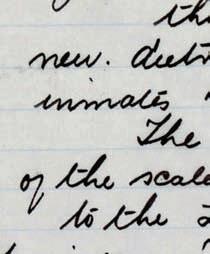 the
new. diet
inmates
The
of the scale
to the